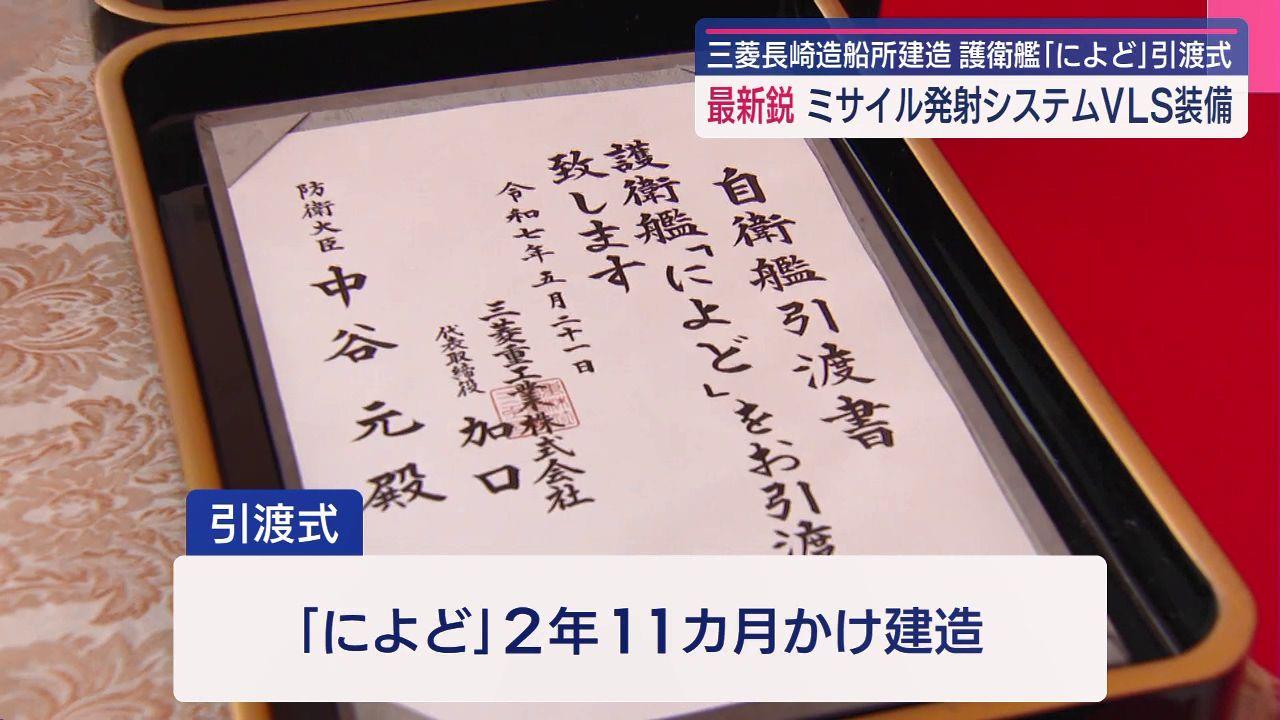 三菱長崎造船所建造 護衛艦「によど」引渡式
最新鋭 ミサイル発射システムVLS装備
自衛艦引渡書
護衛艦「によど」をお引渡
致します
令和七年五月二十一日
三菱重工業株式会社
代表取締役 加口
防衛大臣 中谷 元 殿
引渡式
「によど」2年11カ月かけ建造